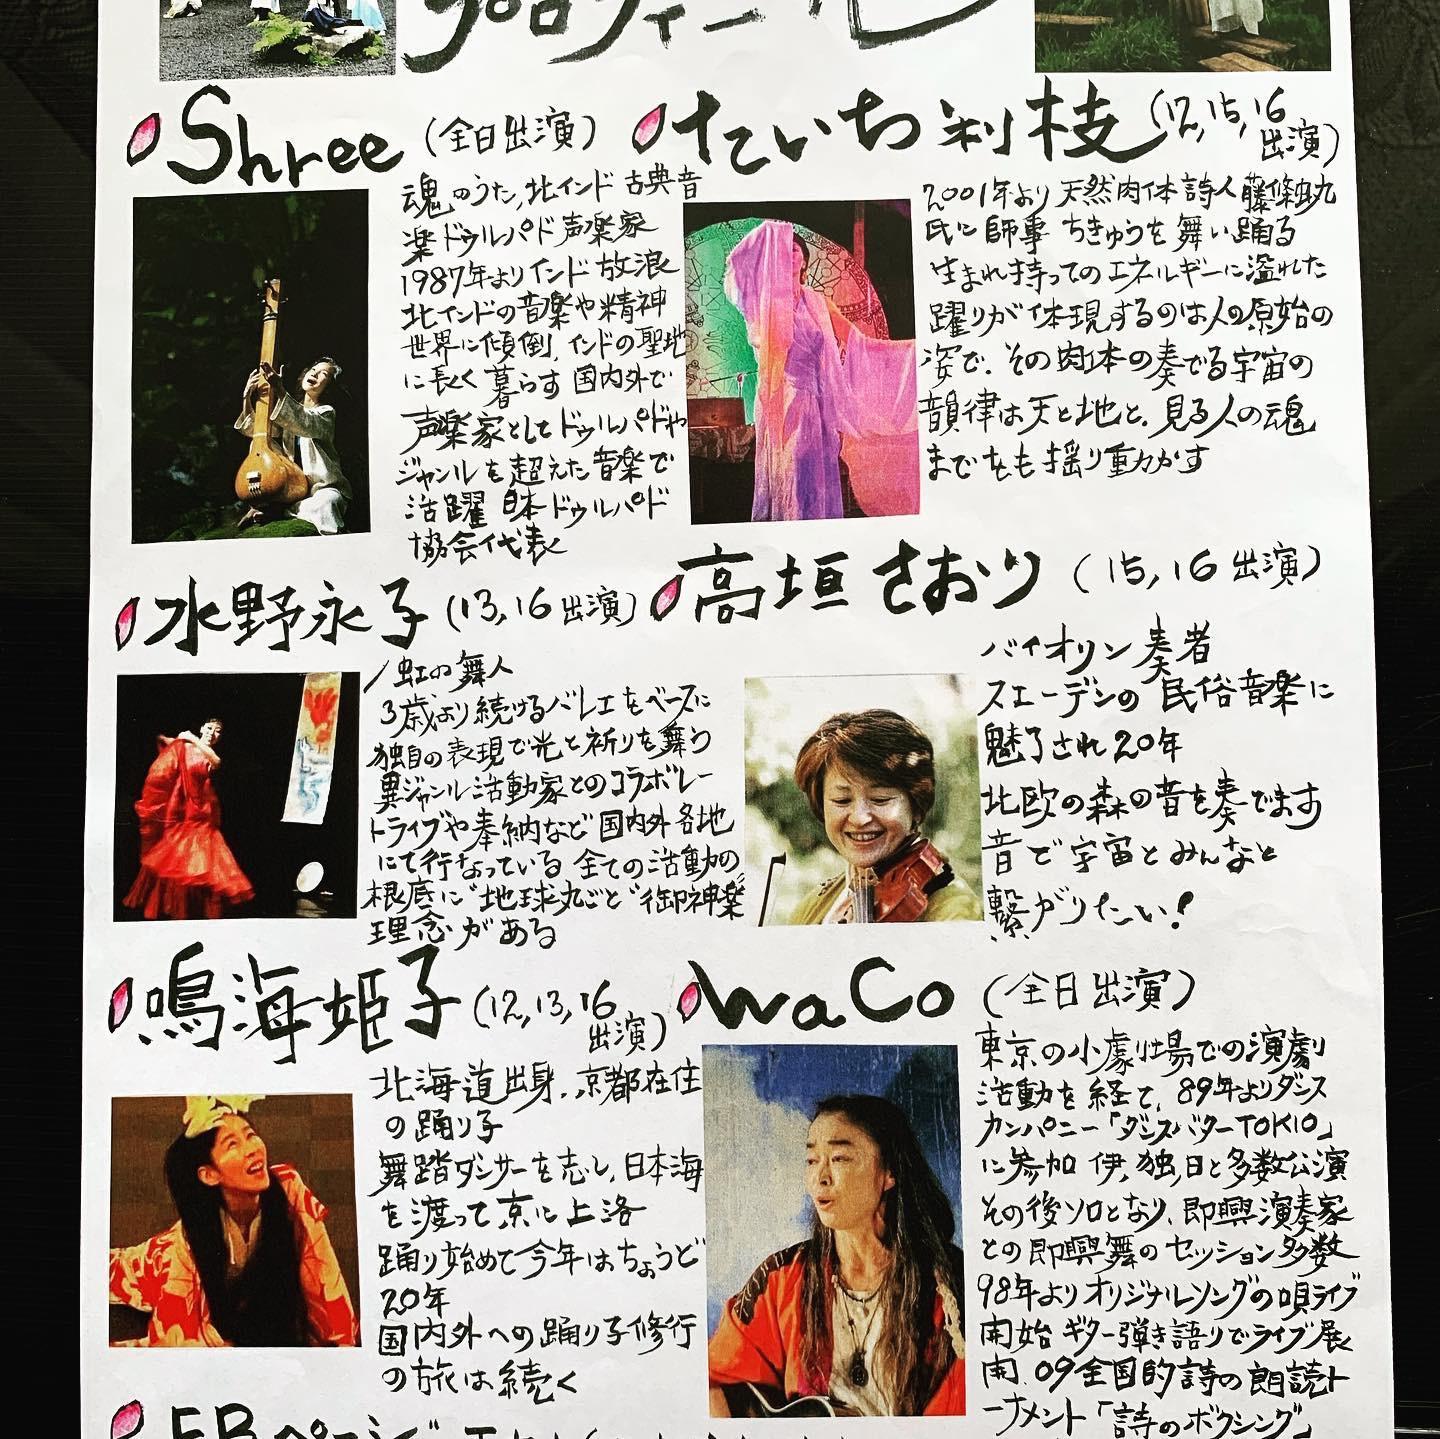 プロフィール
Shree (全日出演)
魂のうた,北インド古典音
楽ドゥルパド声楽家
1987年よりインド放浪
北インドの音楽や精神
世界に傾倒,インドの聖地
に長く暮らす 国内外で
声楽家としてドゥルパドや
ジャンルを超えた音楽で
活躍 日本ドゥルパド
協会代表
たいち利枝 (12,15,16
出演)
2001年より天然肉体詩人藤條虫丸
氏に師事 ちきゅうを舞い踊る
生まれ持ってのエネルギーに溢れた
躍りが体現するのは人の原始の
姿で、その肉体の奏でる宇宙の
韻律は天と地と、見る人の魂
までをも揺り動かす
水野永子 (13,16出演)
虹の舞人
3歳より続けるバレエをベースに
独自の表現で光と祈りを舞う
異ジャンル活動家とのコラボレー
トライブや奉納など国内外各地
にて行なっている 全ての活動の
根底に"地球丸ごと"御神楽"
理念がある
高垣さおり (15,16出演)
バイオリン奏者
スエーデンの民俗音楽に
魅了され20年
北欧の森の音を奏でます
音で宇宙とみんなと
繋がりたい!
鳴海姫子 (12,13,16
出演)
北海道出身、京都在住
の踊り子
舞踏ダンサーを志し、日本海
を渡って京に上洛
踊り始めて今年はちょうど
20年
国内外への踊り子修行
の旅は続く
WaCo (全日出演)
東京の小劇場での演劇
活動を経て、89年よりダンス
カンパニー「ダンスバターTOKIO」
に参加 伊,独,日と多数公演
その後ソロとなり、即興演奏家
との即興舞のセッション多数
98年よりオリジナルソングの唄ライブ
開始 ギター弾き語りでライブ展
開. 09全国的詩の朗読ト
ーナメント「詩のボクシング」